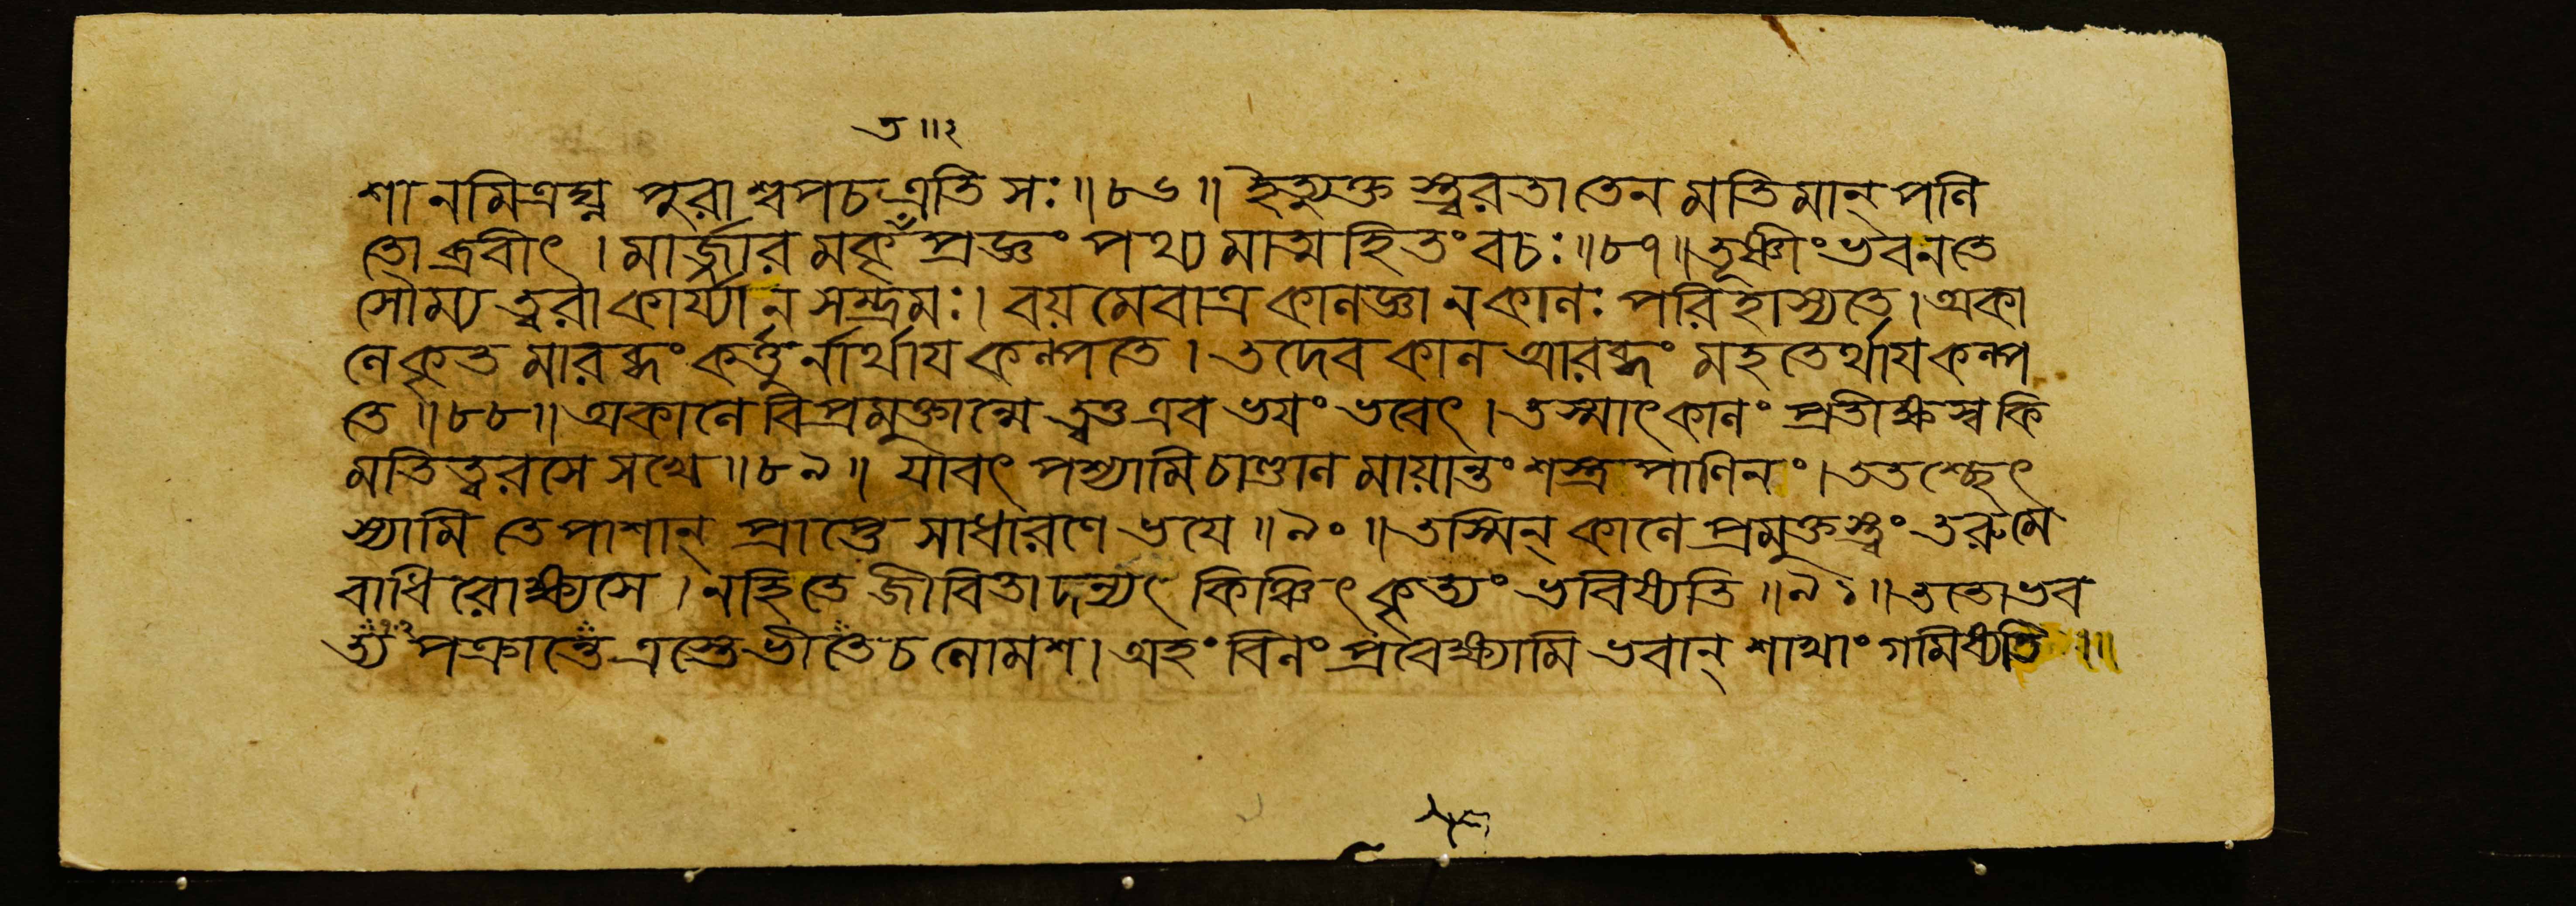 ত॥২
শানমিত্রঘ্ন পুরাশ্বপচএতি সঃ॥৮৬॥ ইত্যুক্ত স্ত্বরতাতেন মতিমান্ পণি
তোব্রবীৎ । মার্জ্জার মকৃঁপ্রজ্ঞং পথ্য মাত্মহিতং বচঃ॥৮৭॥ তূষ্ণীং ভবনতে
সৌম্য ত্বরা কার্য্যান সম্ভ্রমঃ। বয়মেবাত্র কানজ্ঞা নকানঃ পরিহাস্যতে। অকা
নেকৃত মারব্ধং কর্ত্তুর্নার্থায কণ্পতে । তদেব কান আরব্ধং মহতের্থায কণ্প
তে ॥৮৮॥ অকানে বিপ্রমুক্তান্মে ত্বত্ত এব ভযং ভবেৎ । তস্মাৎকানং প্রতীক্ষস্ব কি
মতি ত্বরসে সখে ॥৮৯॥ যাবৎ পশ্যামি চাণ্ডান মায়ান্তং শস্ত্রপাণিনং। ততশ্ছেৎ
স্যামি তে পাশান্ প্রাপ্তে সাধারণে ভযে ॥৯০॥ তস্মিন্ কানে প্রমুক্তস্ত্বং তরুমে
বাধি রোক্ষ্যসে । নহি তে জীবিতা দন্যৎ কিঞ্চিৎ কৃত্যং ভবিষ্যতি ॥৯১॥ ততোভব
ত্য পক্রান্তে ত্রস্তে ভীতে চ নোমশ। অহং বিনং প্রবেক্ষ্যামি ভবান্ শাখাং গমিষ্যতি ॥